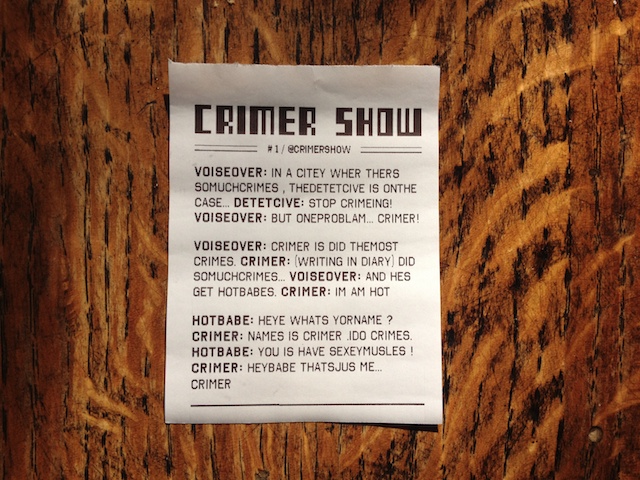 CRIMER SHOW
# 1 / @CRIMERSHOW
VOISEOVER: IN A CITEY WHER THERS
SOMUCHCRIMES , THEDETETCIVE IS ONTHE
CASE... DETETCIVE: STOP CRIMEING!
VOISEOVER: BUT ONEPROBLAM... CRIMER!
VOISEOVER: CRIMER IS DID THEMOST
CRIMES. CRIMER: (WRITING IN DIARY) DID
SOMUCHCRIMES... VOISEOVER: AND HES
GET HOTBABES. CRIMER: IM AM HOT
HOTBABE: HEYE WHATS YORNAME ?
CRIMER: NAMES IS CRIMER .IDO CRIMES.
HOTBABE: YOU IS HAVE SEXEYMUSLES !
CRIMER: HEYBABE THATSJUS ME...
CRIMER